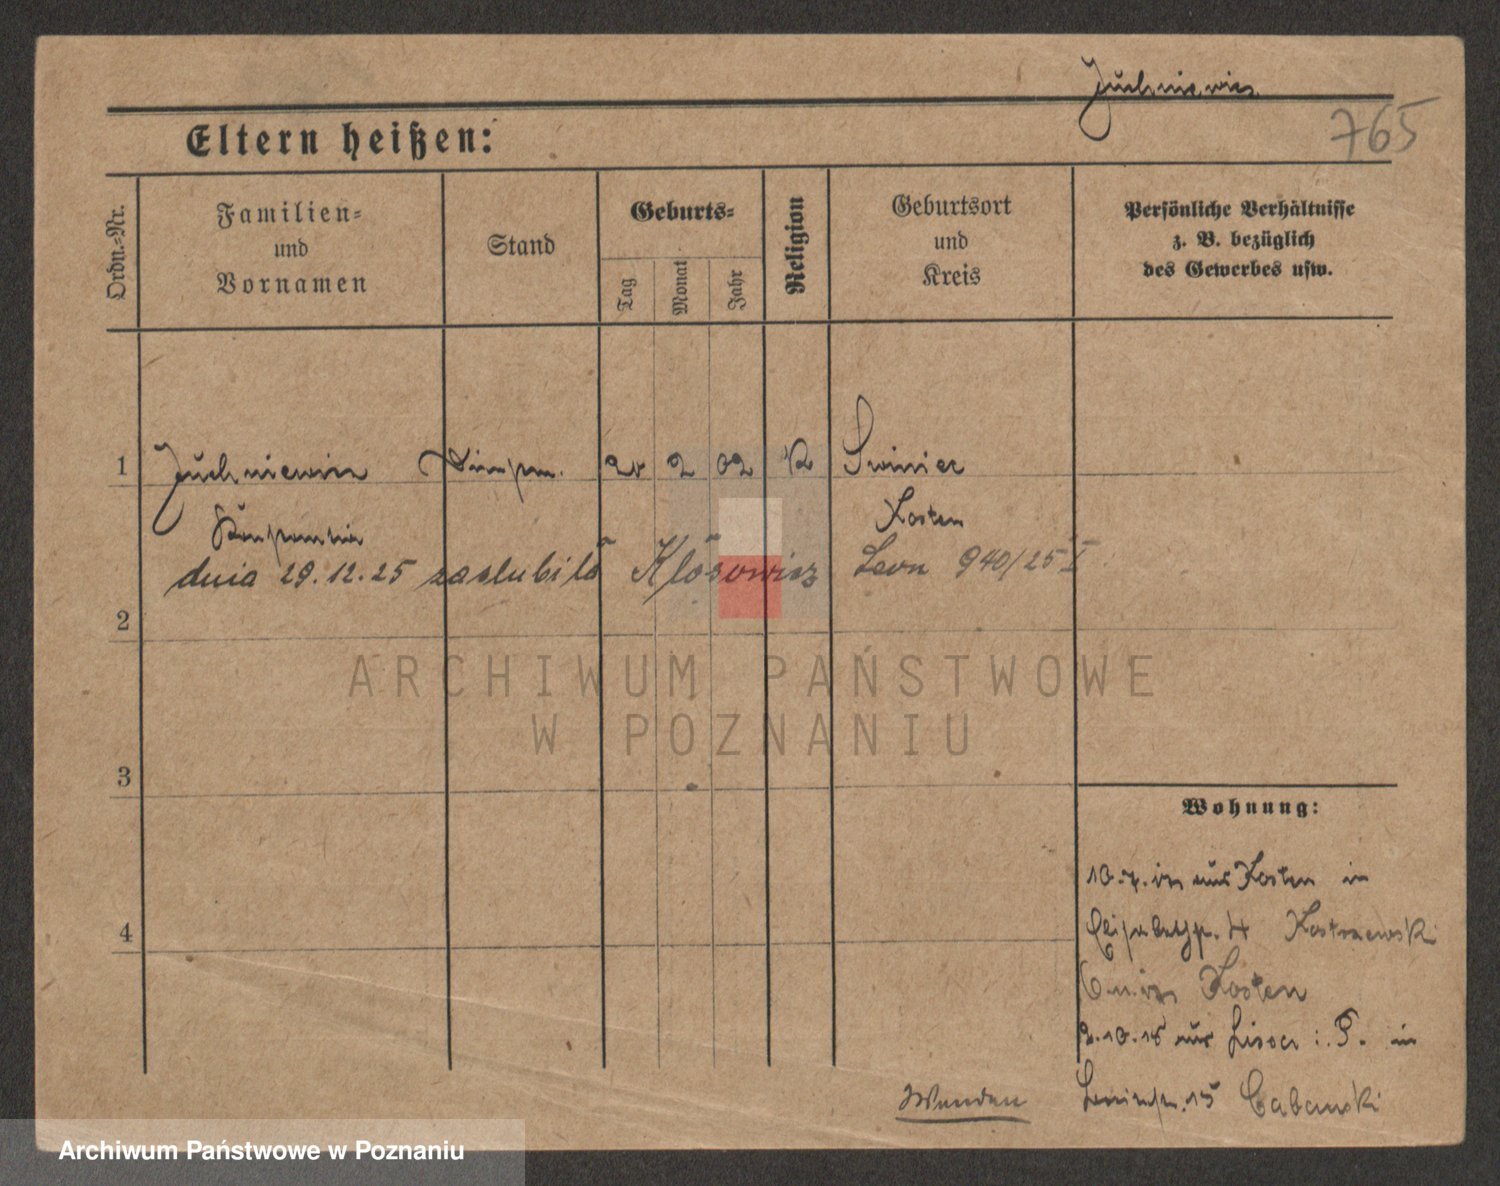 Juchniewicz
765
Eltern heißen:
Ordn.-Nr.
Familien-
und
Vornamen
Stand
Geburts-
Tag
Monat
Jahr
Religion
Geburtsort
und
Kreis
Persönliche Verhältnisse
z. B. bezüglich
des Gewerbes usw.
1 Juchniewicz 2 02 K
Kosten
dnia 29.12.25 zaslubiła Klósowicz Leon 940/25 I
2
ARCHIWUM PAŃSTWOWE
W POZNANIU
3
Wohnung:
aus Kosten in
4 Kostrzewski
Kosten
2.10.18 aus Lissa i. P. in
15 Cabanski
Wenden
Archiwum Państwowe w Poznaniu